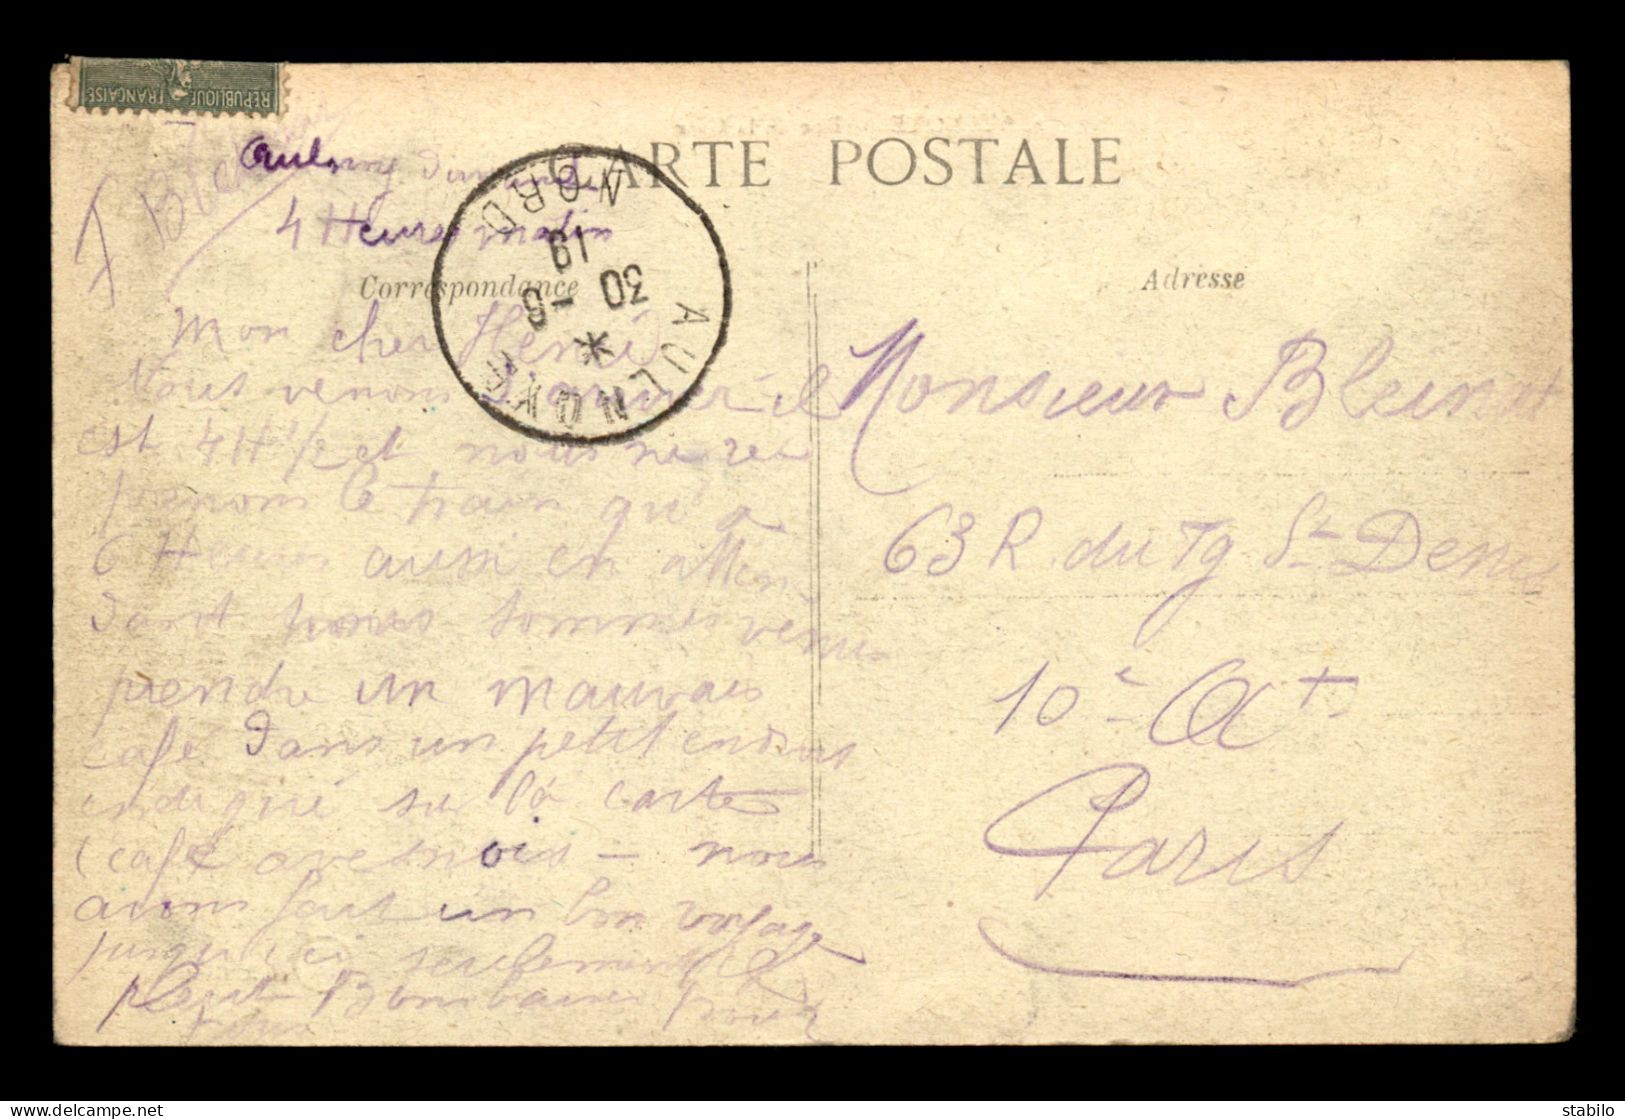 RÉPUBLIQUE FRANÇAISE
CARTE POSTALE
Aulnoy dimanche
4 Heures matin
AULNOYE
NORD
30 -6
19
Correspondance
Adresse
Mon cher Henri
Nous venons d'arriver il
est 4 H 1/2 et nous ne re
prenons le train qu'à
6 Heures aussi en atten
dant nous sommes venus
prendre un mauvais
café dans un petit endroit
indiqué sur la carte
(café avesnois - nous
avons fait un bon voyage
jusqu'ici seulement il
pleut Bons baisers pour
tous
Monsieur
63 R. du Fg St Denis
10e At
Paris
delcampe.net
stabilo